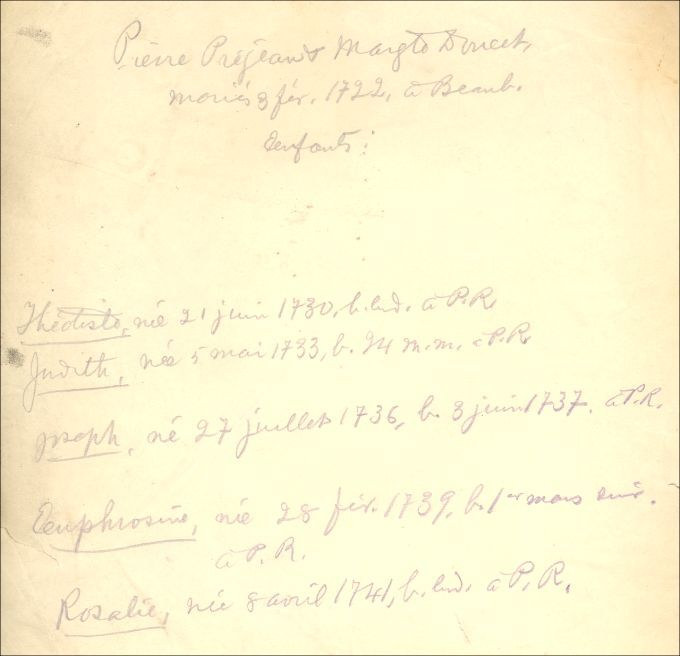 Pierre Préjean & Margte Doucet,
mariés 3 fév. 1722, à Beaub.
Enfants:
Théotiste, née 21 juin 1730, b. lnd. à P.R.
Judith, née 5 mai 1733, b. 24 m.m. à P.R.
Joseph, né 27 juillet 1736, b. 3 juin 1737. à P.R.
Euphrosine, née 28 fév. 1739, b. 1er mars suiv.
à P.R.
Rosalie, née 8 avril 1741, b. lnd. à P.R.